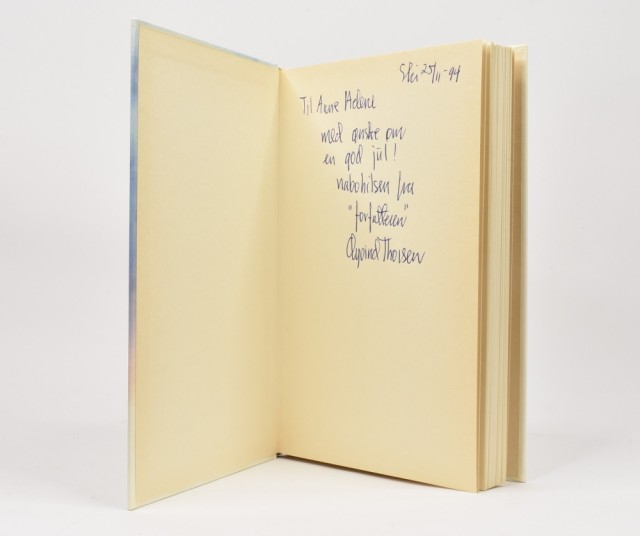 Ski 25/11-94
Til Anne Helene
med ønske om
en god jul!
nabohilsen fra
"forfatteren"
Øyvind Thorsen